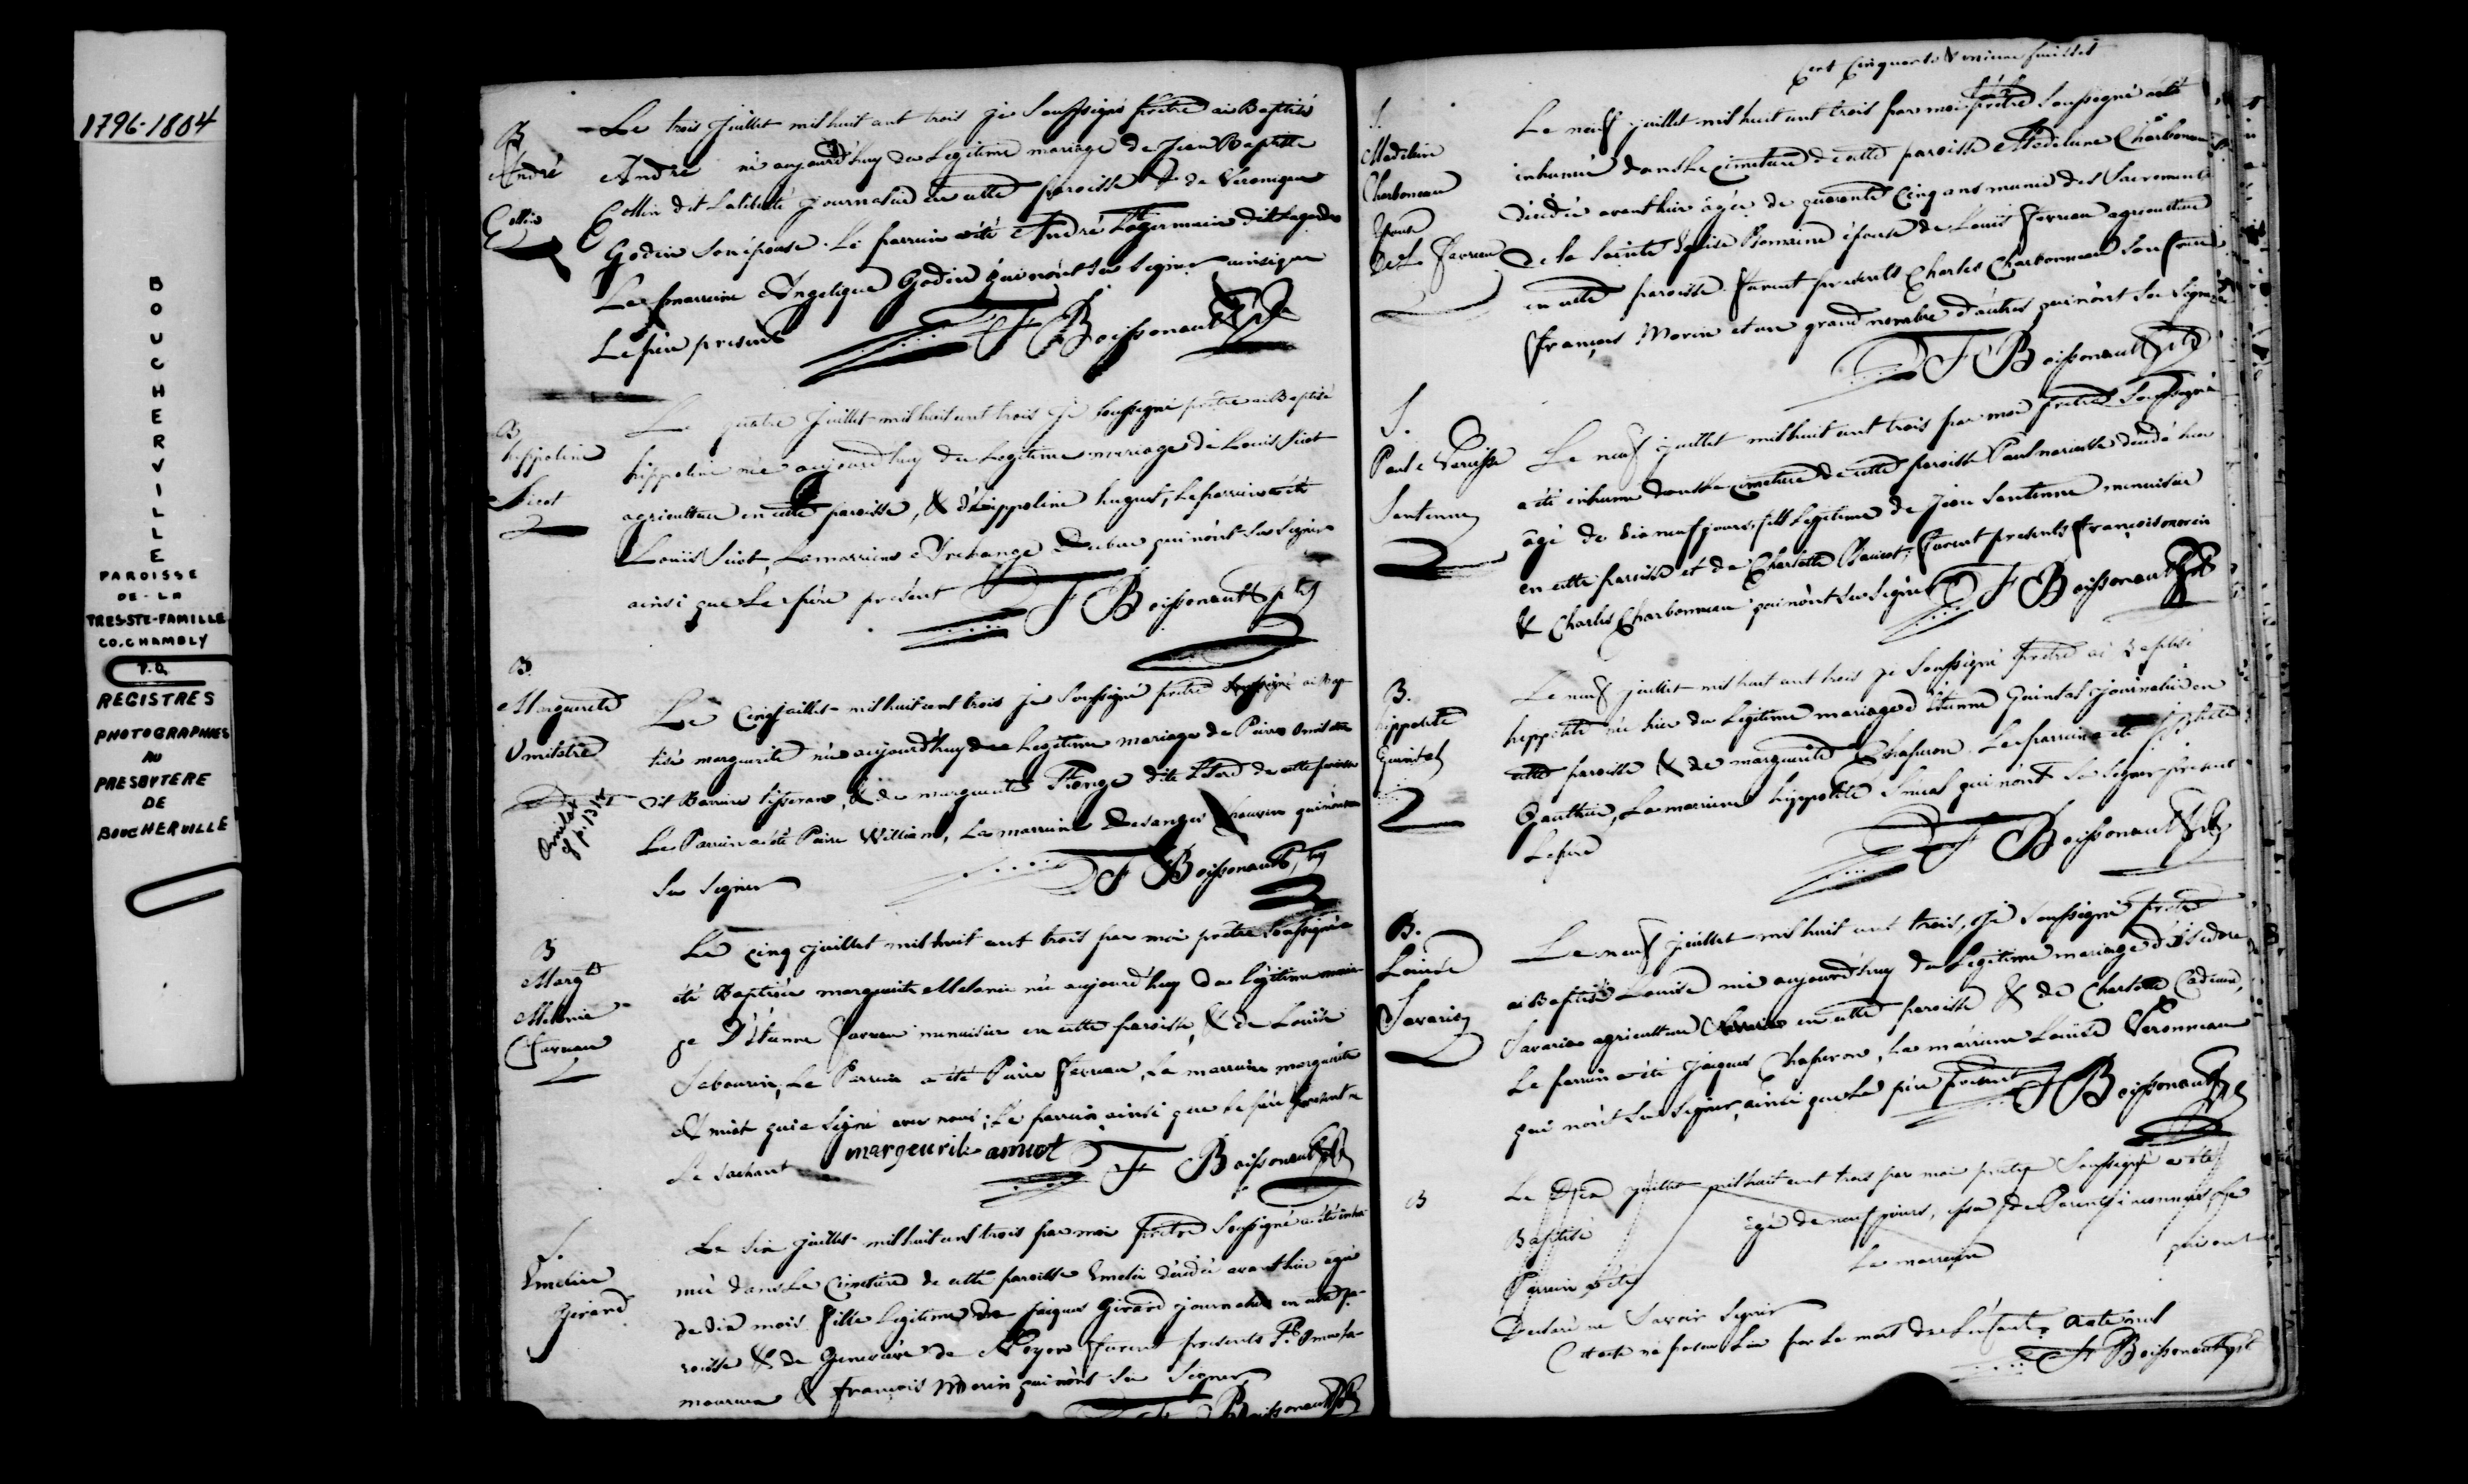 1796-1804
BOUCHERVILLE
PAROISSE
DE-LA
TRES-STE-FAMILLE
CO.CHAMBLY
P.Q.
REGISTRES
PHOTOGRAPHIES
AU
PRESBYTERE
DE
BOUCHERVILLE
B
André
Collin
Le trois Juillet mil huit cent trois je Soussigné prêtre ai Baptisé
André né aujourd'huy du Legitime mariage de Jean Baptiste
Collin dit Laliberté journalier en cette paroisse & de Veronique
Godin son épouse. Le parrain a été André St germain dit Lagarde
La marraine Angelique Godin qui n'ont su signer ainsi que
Le père présent F Boissonault ptre
B
hippoline
Sicot
Le quatre Juillet mil huit cent trois je soussigné prêtre ai Baptisé
hippoline née aujourd'huy du Legitime mariage de Louis Sicot
agriculteur en cette paroisse, & d'hippoline huguet, Le parrain a été
Louis Sicot, La marraine Archange qui n'ont su signer
ainsi que Le père présent F Boissonault ptre
B
Marguerite
Omilatre
Omilat
cf p. 131 r
Le Cinq juillet mil huit cent trois je soussigné prêtre ai Bap-
tisé marguerite née aujourd'huy du Legitime mariage de Pierre
dit tisseran, & de marguerite dite de cette paroisse
Le Parrain a été Pierre William, La marraine Desanges qui n'ont
su signer F Boissonault ptre
B
Margte
Melanie
Favreau
Le cinq juillet mil huit cent trois par moi prêtre soussigné a
été Baptisée marguerite Melanie née aujourd'huy du légitime maria-
ge D'Étienne Favreau menuisier en cette paroisse, & de Louise
Sabourin, Le Parrain a été Pierre Favreau, La marraine marguerite
Amiot qui a signé avec nous; Le parrain ainsi que le père présent ne
Le sachant margeurite amiot F Boissonault ptre
S.
Emelie
Girard
Le six juillet mil huit cent trois par moi prêtre soussigné a été inhu-
mée dans Le Cimetière de cette paroisse Emelie décédée avant hier agée
de dix mois fille Legitime de Jaques Girard journalier en cette pa-
roisse & de Genevieve de Noyon furent présents
& françois Morin qui n'ont su signer
F Boissonault ptre
Cent Cinquante & onzieme feuillet
S.
Madeleine
Charbonneau
Epouse
de L. Favreau
Le neuf juillet mil huit cent trois par moi prêtre soussigné a été
inhumée dans Le cimetiere de cette paroisse Madeleine Charbonneau
décédée avant hier agée de quarante cinq ans munie des Sacrements
de la Sainte Eglise Romaine épouse de Louis Favreau agriculteur
en cette paroisse. Furent présents Charles Charbonneau son frere
François Morin et un grand nombre d'autres qui n'ont su signer
F Boissonault ptre
S.
Paul Narcisse
Santenne
Le neuf juillet mil huit cent trois par moi prêtre soussigné
a été inhumé dans Le cimetiere de cette paroisse Paul narcisse décédé hier
agé de dix neuf jours, fils Legitime de Jean Santenne menuisier
en cette paroisse et de Charlotte, furent presents François morin
& Charles Charbonneau qui n'ont su signer F Boissonault ptre
B.
hippolite
Quintal
Le neuf juillet mil huit cent trois je soussigné prêtre ai baptisé
hippolite né hier du Legitime mariage d'étienne Quintal journalier en
cette paroisse & de marguerite Chaperon. Le parrain a été
Gauthier, La marraine hippolite qui n'ont su signer présent
Le père F Boissonault ptre
B.
Louise
Savaria
Le neuf juillet mil huit cent trois, je soussigné prêtre
ai Baptisé Louise née aujourd'huy du Legitime mariage d'isidore
Savaria agriculteur en cette paroisse & de Charlotte Cadieux,
Le parrain a été Jaques Chaperon, La marraine Louise Véronneau
qui n'ont su signer, ainsi que Le père présent F Boissonault ptre
B
Le Dix juillet mil huit cent trois par moi prêtre soussigné a été
Baptisé âgé de neuf jours, de Parents inconnus, Le
Parrain a été La marraine qui ont
Declaré ne savoir signer
Cet acte par La mort de L'enfant, est nul
F Boissonault ptre